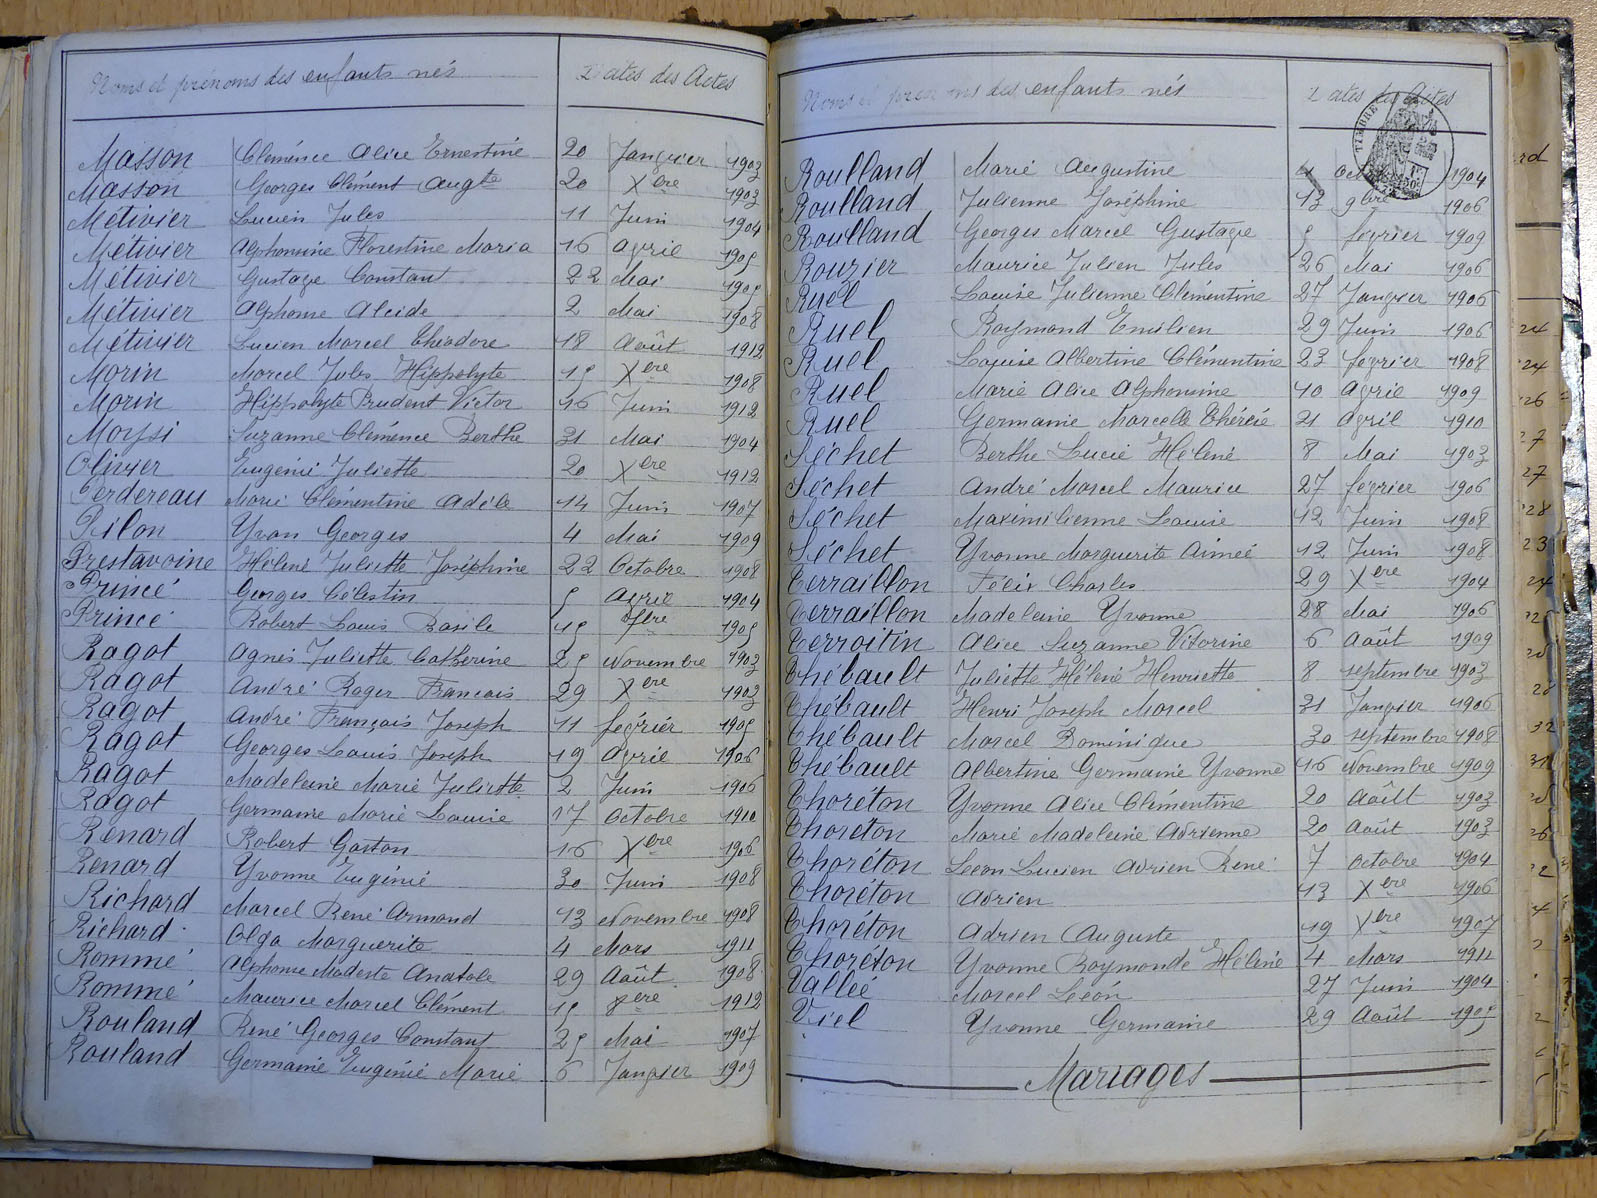 Noms et prénoms des enfants nés Dates des Actes
Masson Clémence Alice Ernestine 20 Janvier 1903
Masson Georges Clément Augte 20 Xbre 1903
Métivier Lucien Jules 11 Juin 1904
Métivier Alphonsine Florestine Maria 16 avril 1905
Métivier Gustave Constant 22 Mai 1905
Métivier Alphonse Alcide 2 Mai 1908
Métivier Lucien Marcel Théodore 18 Août 1912
Morin Marcel Jules Hippolyte 15 Xbre 1908
Morin Hippolyte Prudent Victor 16 Juin 1912
Moysi Suzanne Clémence Berthe 31 Mai 1904
Olivier Eugénie Juliette 20 Xbre 1912
Perdereau Marie Clémentine Adèle 14 Juin 1907
Pilon Yvan Georges 4 Mai 1909
Prestavoine Hélène Juliette Joséphine 22 Octobre 1908
Princé Georges Célestin 5 avril 1904
Princé Robert Louis Basile 15 1905
Ragot Agnès Juliette Catherine 25 Novembre 1903
Ragot André Roger François 29 Xbre 1903
Ragot André François Joseph 11 février 1905
Ragot Georges Louis Joseph 19 avril 1906
Ragot Madeleine Marie Juliette 2 Juin 1906
Ragot Germaine Marie Louise 17 Octobre 1910
Renard Robert Gaston 16 Xbre 1906
Renard Yvonne Eugénie 30 Juin 1908
Richard Marcel René Armand 13 Novembre 1908
Richard Olga Marguerite 4 Mars 1911
Rommé Alphonse Modeste Anatole 29 Août 1908
Rommé Maurice Marcel Clément 15 1912
Rouland René Georges Constant 25 Mai 1907
Rouland Germaine Eugénie Marie 6 Janvier 1909
Noms et prénoms des enfants nés Dates des Actes
Roulland Marie Augustine 4 1904
Roulland Julienne Joséphine 13 9bre 1906
Roulland Georges Marcel Gustave 5 février 1909
Rouzier Maurice Julien Jules 26 Mai 1906
Ruel Louise Julienne Clémentine 27 Janvier 1906
Ruel Raymond Emilien 29 Juin 1906
Ruel Louise Albertine Clémentine 23 février 1908
Ruel Marie Alice Alphonsine 10 avril 1909
Ruel Germaine Marcelle Thérèse 21 avril 1910
Séchet Berthe Lucie Hélène 8 Mai 1903
Séchet André Marcel Maurice 27 février 1906
Séchet Maximilienne Louise 12 Juin 1908
Séchet Yvonne Marguerite Aimée 12 Juin 1908
Terraillon Félix Charles 29 Xbre 1904
Terraillon Madeleine Yvonne 28 Mai 1906
Terroitin Alice Suzanne Vitorine 6 Août 1909
Thébault Juliette Hélène Henriette 8 septembre 1903
Thébault Henri Joseph Marcel 31 Janvier 1906
Thébault Marcel Dominique 30 septembre 1908
Thébault Albertine Germaine Yvonne 16 Novembre 1909
Thoréton Yvonne Alice Clémentine 20 Août 1903
Thoréton Marie Madeleine Adrienne 20 Août 1903
Thoréton Léon Lucien Adrien René 7 Octobre 1904
Thoréton Adrien 13 Xbre 1906
Thoréton Adrien Auguste 19 Xbre 1907
Thoréton Yvonne Raymonde Hélène 4 Mars 1911
Vallée Marcel Léon 27 Juin 1904
Viel Yvonne Germaine 29 Août 1905
Mariages